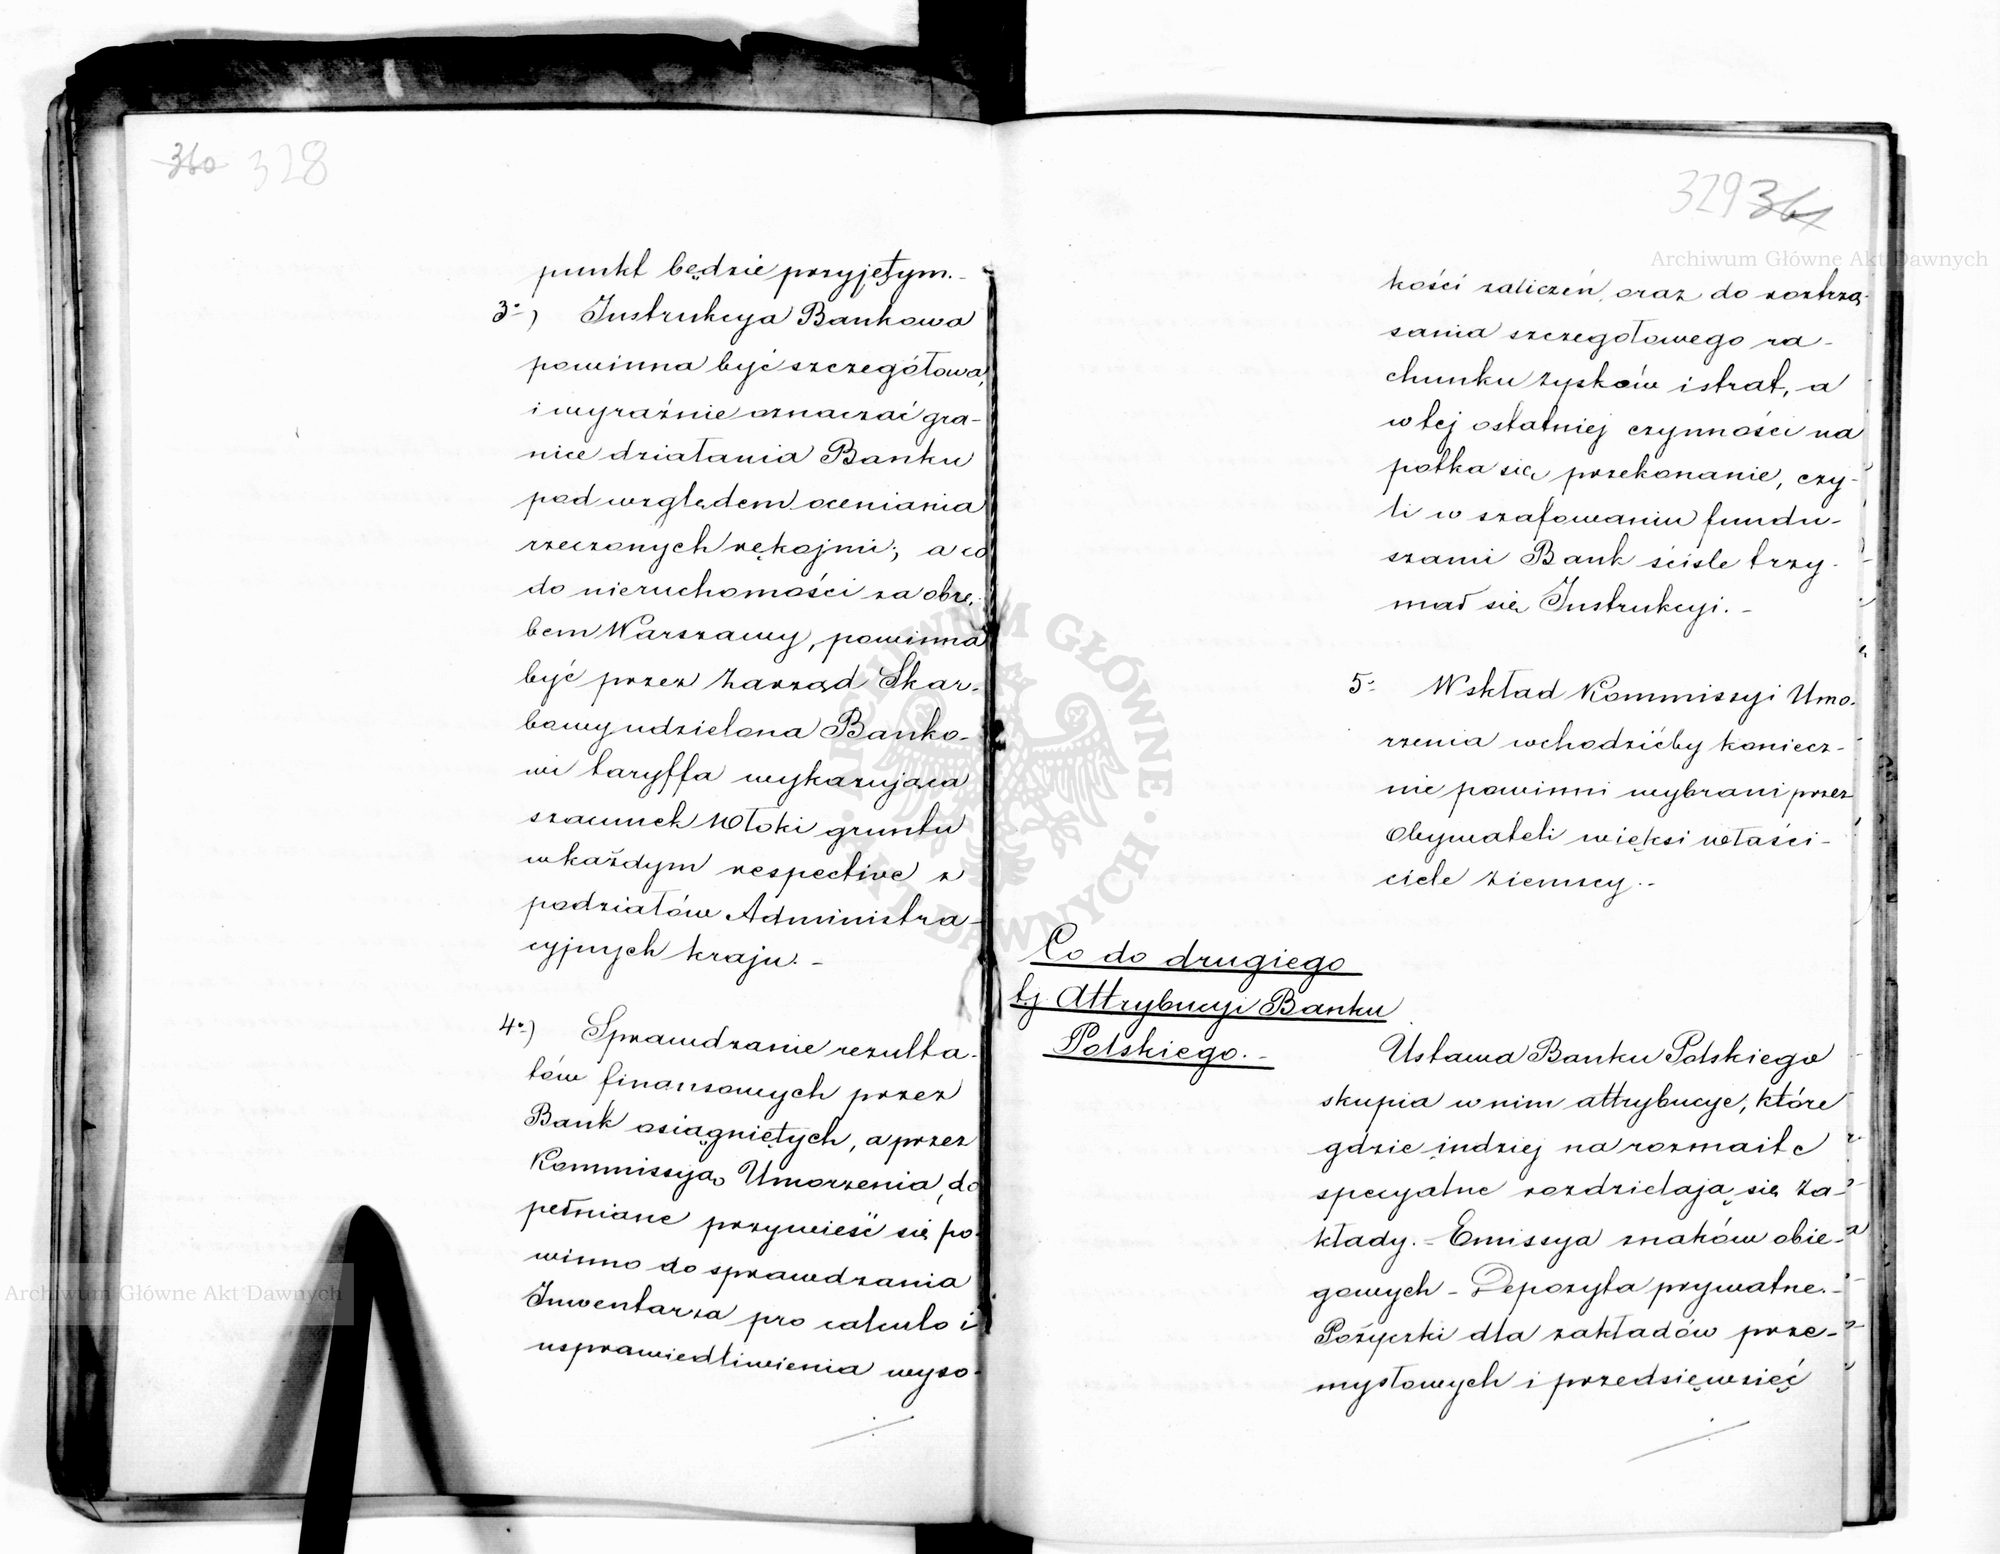 360 328
punkt będzie przyjętym.-
3°) Instrukcya Bankowa
powinna być szczegółowa,
i wyraźnie oznaczać gra-
nice działania Banku
pod względem oceniania
rzeczonych rękojmi; a co
do nieruchomości za obrę-
bem Warszawy, powinna
być przez Zarząd Skar-
bowy udzielona Banko-
wi taryffa wykazująca
szacunek włoki gruntu
w każdym respective z
podziałów Administra-
cyjnych kraju.-
4°) Sprawdzanie rezulta-
tów finansowych przez
Bank osiągniętych, a przez
Kommissyą Umorzenia, do
pełniane przywieść się po-
winno do sprawdzania
Inwentarza pro calculo i
usprawiedliwienia wyso-
329 361
kości zaliczeń, oraz do roztrzą-
sania szczegółowego ra-
chunku zysków i strat, a
w tej ostatniej czynności na
potka się przekonanie, czy-
li w szafowaniu fundu-
szami Bank ściśle trzy-
mał się Instrukcyi.-
5° W skład Kommissyi Umo-
rzenia wchodzićby koniecz-
nie powinni wybrani przez
Obywateli więksi właści-
ciele ziemscy.-
Co do drugiego
t.j. Attrybucyi Banku
Polskiego.-
Ustawa Banku Polskiego
skupia w nim attrybucye, które
gdzie indziej na rozmaite
specyalne rozdzielają się Za-
kłady.- Emissya znaków obie-
gowych - Depozyta prywatne.-
Pożyczki dla zakładów prze-
mysłowych i przedsięwzięć
Archiwum Główne Akt Dawnych
Archiwum Główne Akt Dawnych
ARCHIWUM GŁÓWNE AKT DAWNYCH